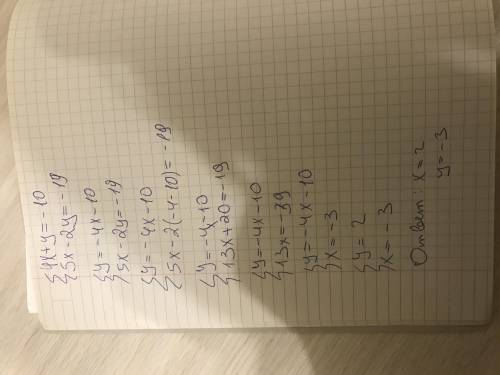 {4x+y=-10
{5x-2y=-19
{y=-4x-10
{5x-2y=-19
{y=-4x-10
{5x-2(-4-10)=-19
{y=-4x10
{13x+20=-19
{y=-4x-10
{13x=-39
{y=-4x-10
{x=-3
{y=2
{x=-3
Ответ: x=2
y=-3